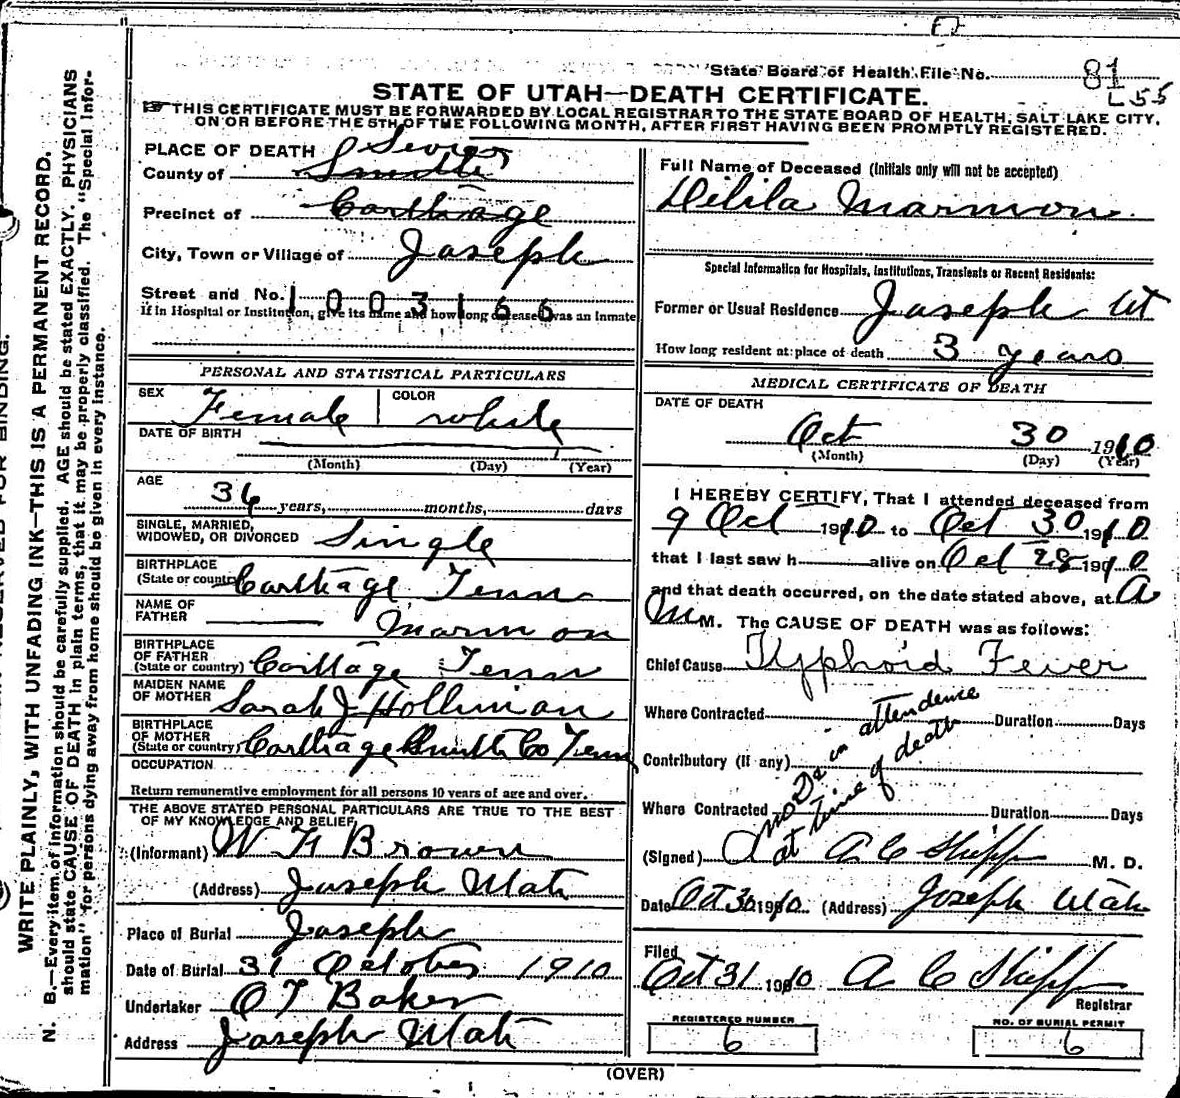 State Board of Health File No. 81
L 55
STATE OF UTAH—DEATH CERTIFICATE.
THIS CERTIFICATE MUST BE FORWARDED BY LOCAL REGISTRAR TO THE STATE BOARD OF HEALTH, SALT LAKE CITY,
ON OR BEFORE THE 5TH OF THE FOLLOWING MONTH, AFTER FIRST HAVING BEEN PROMPTLY REGISTERED.
PLACE OF DEATH Sevier
County of Smith
Precinct of Carthage
City, Town or Village of Joseph
Street and No. 1003166
If in Hospital or Institution, give its name and how long deceased was an Inmate
PERSONAL AND STATISTICAL PARTICULARS
SEX Female COLOR White
DATE OF BIRTH
(Month) (Day) (Year)
AGE
36 years, months, days
SINGLE, MARRIED,
WIDOWED, OR DIVORCED Single
BIRTHPLACE
(State or country) Carthage Tenn
NAME OF
FATHER Marmon
BIRTHPLACE
OF FATHER
(State or country) Carthage Tenn
MAIDEN NAME
OF MOTHER Sarah J Holliman
BIRTHPLACE
OF MOTHER
(State or country) Carthage Smith Co Tenn
OCCUPATION
Return remunerative employment for all persons 10 years of age and over.
THE ABOVE STATED PERSONAL PARTICULARS ARE TRUE TO THE BEST
OF MY KNOWLEDGE AND BELIEF,
(Informant) W H Brown
(Address) Joseph Utah
Place of Burial Joseph
Date of Burial 31 October 1910
Undertaker O T Baker
Address Joseph Utah
Full Name of Deceased (Initials only will not be accepted)
Delila Marmon
Special Information for Hospitals, Institutions, Transients or Recent Residents:
Former or Usual Residence Joseph Ut
How long resident at place of death 3 years
MEDICAL CERTIFICATE OF DEATH
DATE OF DEATH
Oct 30 1910
(Month) (Day) (Year)
I HEREBY CERTIFY, That I attended deceased from
9 Oct 1910 to Oct 30 1910
that I last saw h alive on Oct 28 1910
and that death occurred, on the date stated above, at A
M M. The CAUSE OF DEATH was as follows:
Chief Cause Typhoid Fever
Where Contracted Duration Days
Contributory (If any)
no Dr in attendence
at time of death
Where Contracted Duration Days
(Signed) A C Shipp M. D.
Date Oct 30 1910 (Address) Joseph Utah
Filed
Oct 31 1910 A C Shipp
Registrar
REGISTERED NUMBER
6
NO. OF BURIAL PERMIT
6
(OVER)
RESERVED FOR BINDING.
WRITE PLAINLY, WITH UNFADING INK—THIS IS A PERMANENT RECORD.
N. B.—Every item of information should be carefully supplied. AGE should be stated EXACTLY. PHYSICIANS
should state CAUSE OF DEATH in plain terms, that it may be properly classified. The "Special Infor-
mation" for persons dying away from home should be given in every instance.